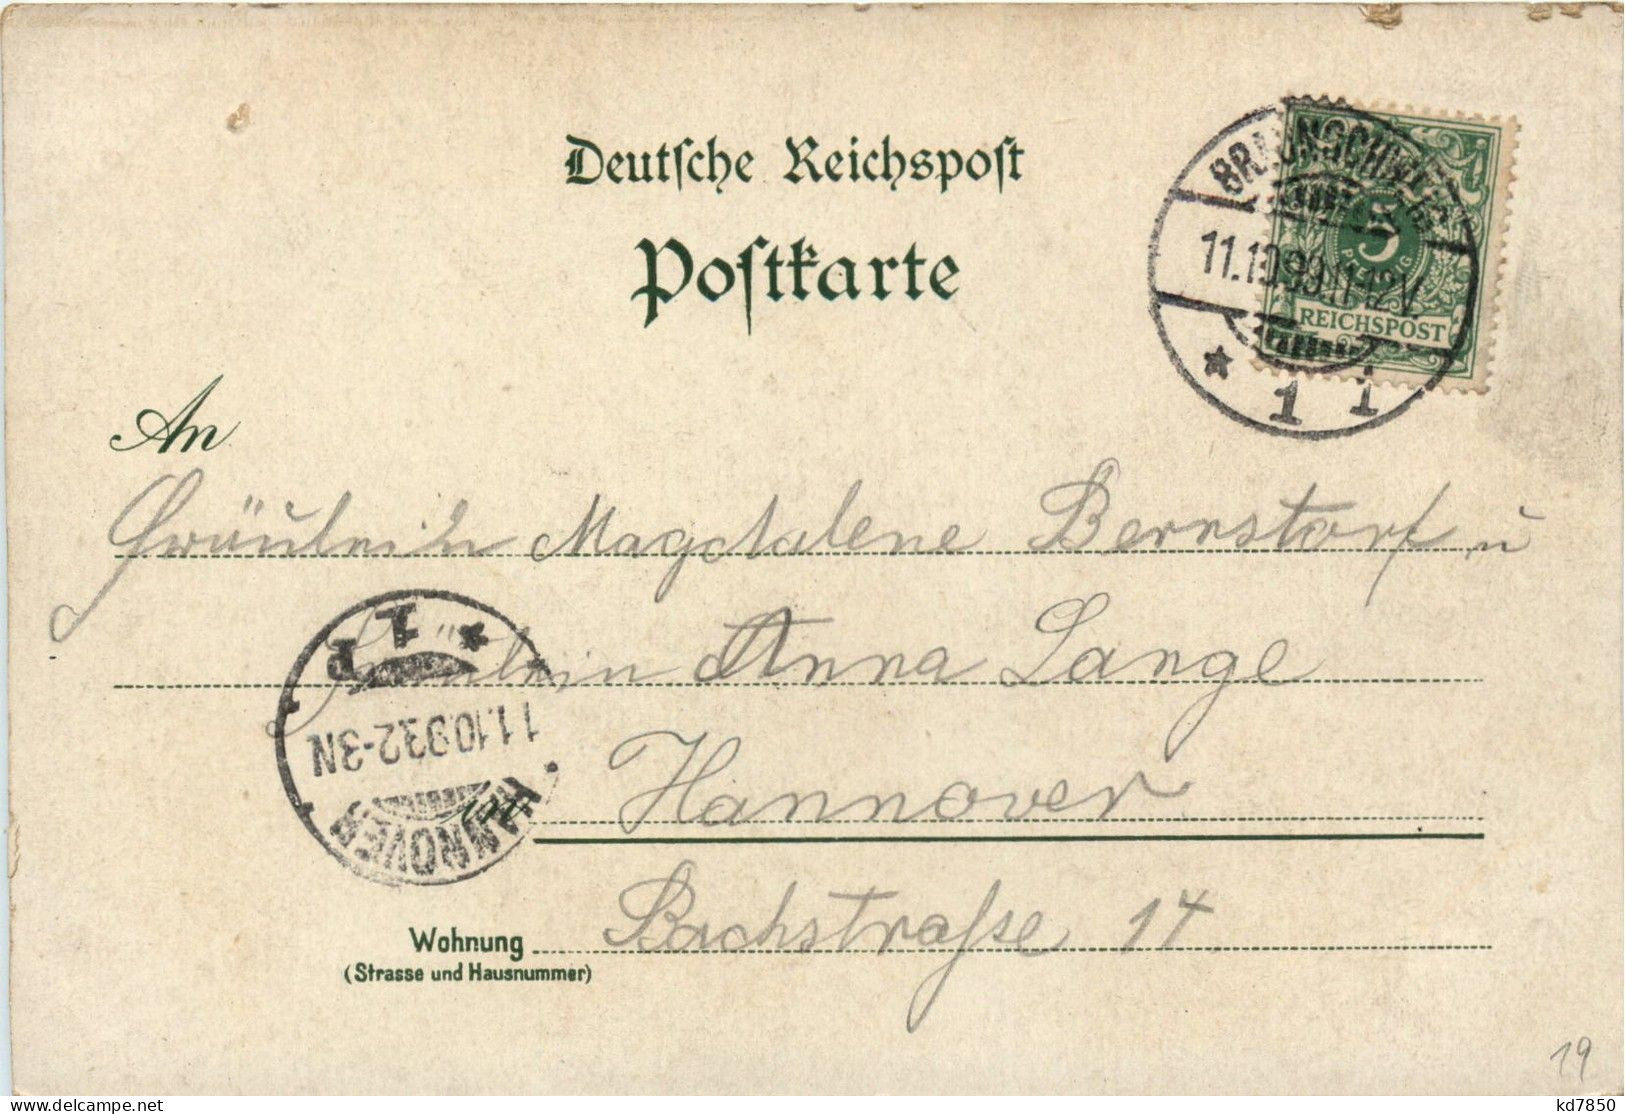 Deutsche Reichspost
Postkarte
BRAUNSCHWEIG
11.10.99.11-12V.
* 1 i
5
PFENNIG
REICHSPOST
An
Fräulein Magdalene Bernstorf u
Fräulein Anna Lange
in Hannover
Bachstraße 14
Wohnung
(Strasse und Hausnummer)
HANNOVER
11.10.99.2-3N
* 1 P
19
delcampe.net
kd7850